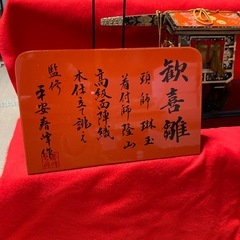 歓喜雛
頭師 琳玉
着付師 隆山
高級西陣織
木仕立て誂え
監修
平安春峰作